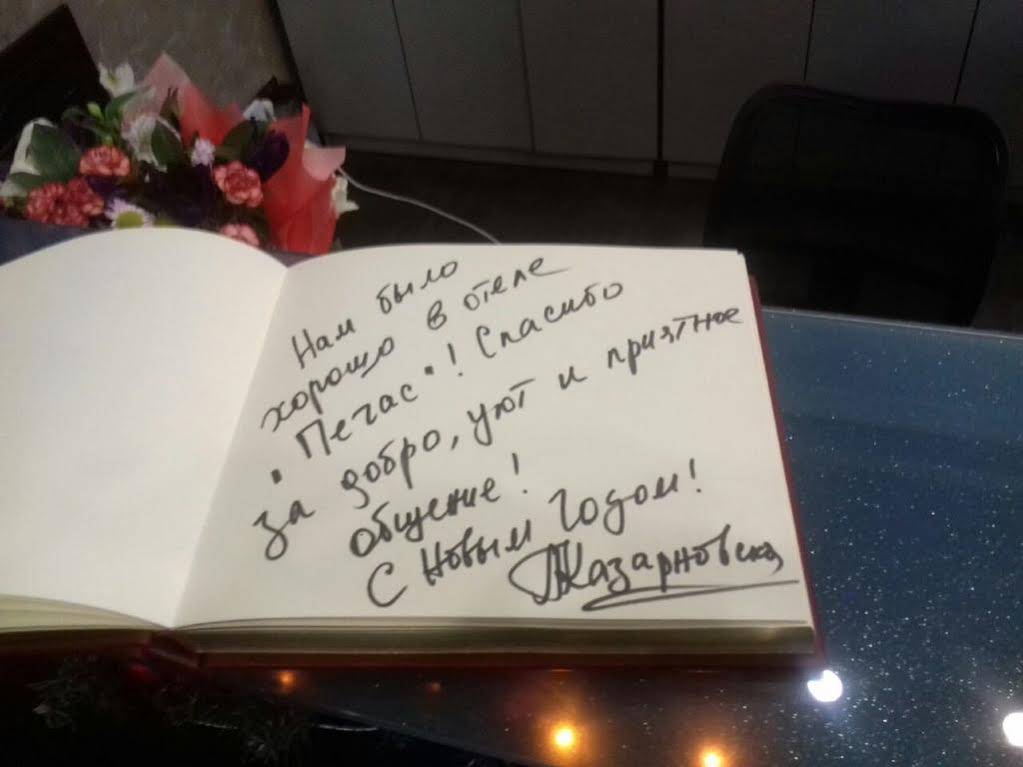 Нам было
хорошо в отеле
"Пегас"! Спасибо
за добро, уют и приятное
общение!
С Новым Годом!
ЛКазарновская